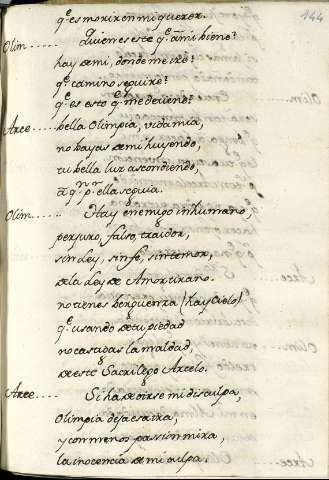 144
qe es morir en mi querer.
Olim..... Quien es este qe a mi biene?
hay de mi, donde me iré?
qe camino seguiré?
qe es esto qe me detiene?
Arce..... bella Olimpia, vida mia,
no bayas de mi huyendo,
tu bella luz ascondiendo,
a qn pr ella seguia.
Olim..... Hay enemigo inhumano,
perjuro, falso, traidor,
sin Ley, sin fe, sin temor,
de la Ley de Amor tirano.
no tienes berguenza (hay Cielo)
qe usando de tu piedad
no castigas la maldad,
de este Sacrilego Arcelo.
Arce..... Si ha de oirse mi disculpa,
Olimpia deja esa ira,
y con menos passion mira,
la inocencia de mi culpa.